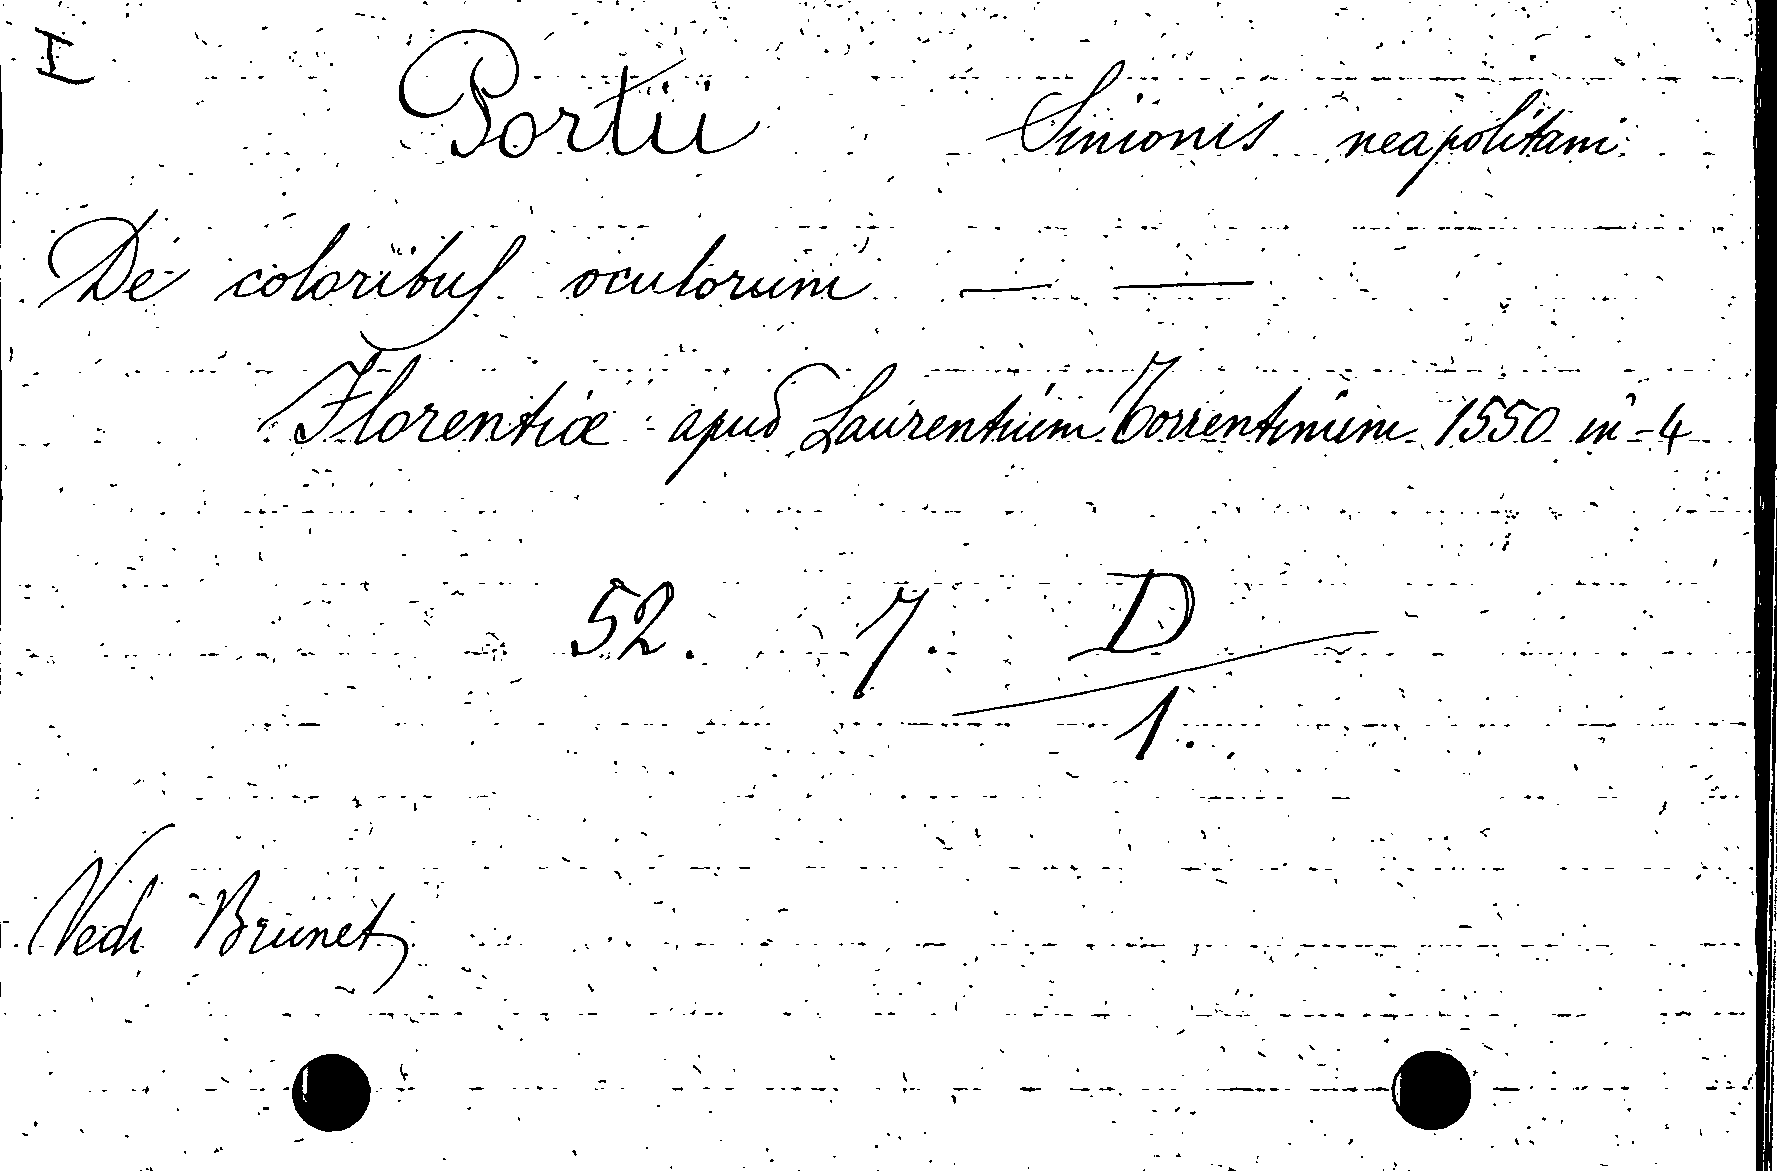 I
Portii Simonis neapolitani
De coloribus oculorum — —
Florentiæ apud Laurentium Torrentinum 1550 in-4
52. 7. D
1.
Vedi Brunet